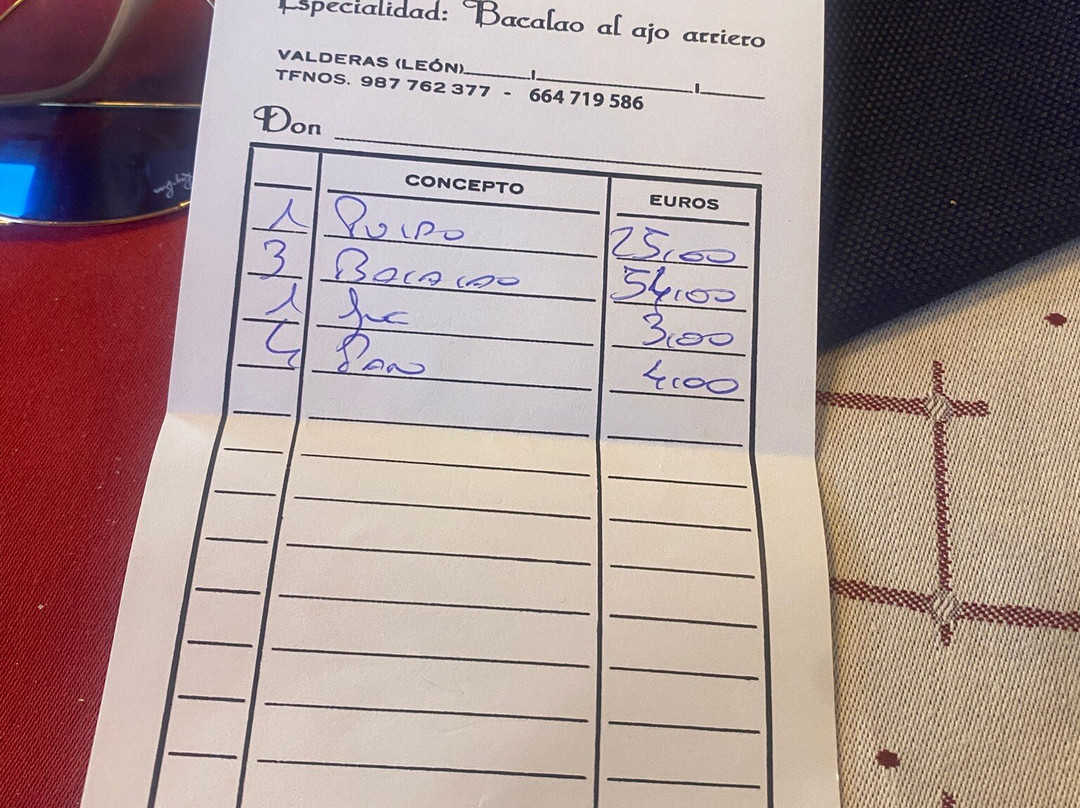 Especialidad: Bacalao al ajo arriero
VALDERAS (LEÓN)
TFNOS. 987 762 377 - 664 719 586
Don
CONCEPTO EUROS
1 PULPO 25,00
3 BACALAO 54,00
1 3,00
4 PAN 4,00